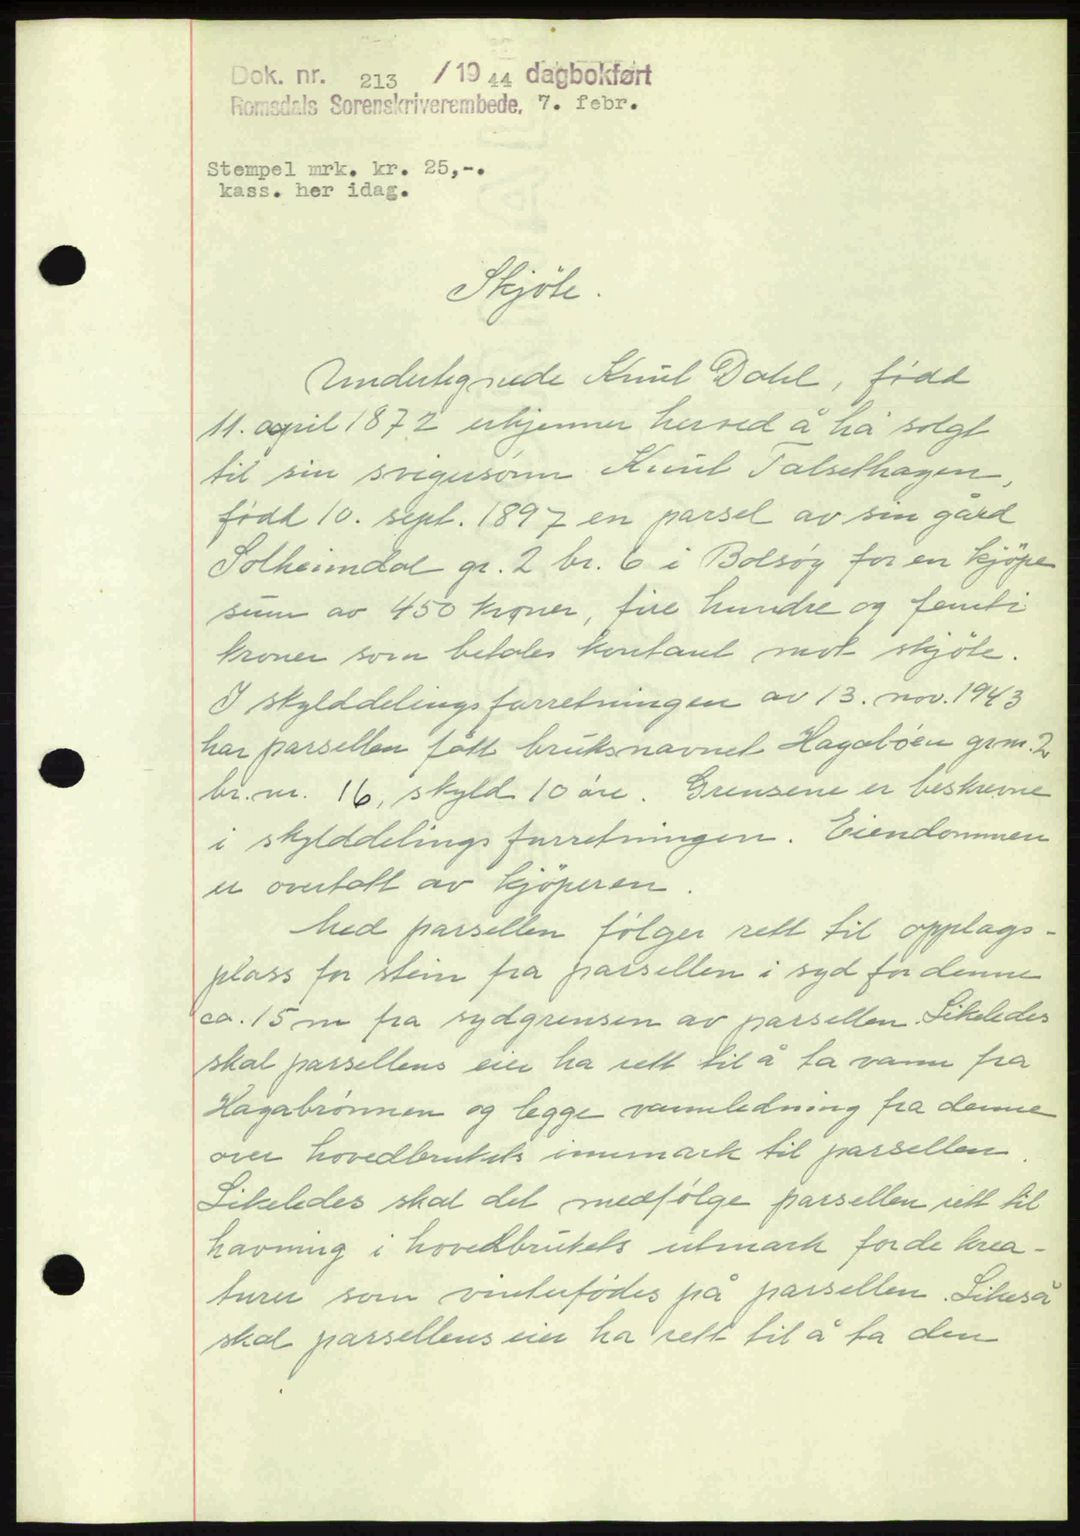 Dok. nr. 213 / 19 44 dagbokført
Romsdals Sorenskriverembede, 7. febr.
Stempel mrk. kr. 25,-.
kass. her idag.
Skjöte.
Undertegnede Knut Dahl, född
11. april 1872 erkjenner herved å ha solgt
til sin svigersönn Knut Talsethagen,
född 10. sept. 1897 en parsel av sin gård
Solheimdal gr. 2 br. 6 i Bolsöy for en kjöpe
sum av 450 kroner, fire hundre og femti
kroner som betales kontant mot skjöte.
I skylddelingsforretningen av 13. nov. 1943
har parsellen fått bruksnavnet Hagaböen grnr. 2
br. nr. 16, skyld 10 öre. Grensene er beskrevne
i skylddelingsforretningen. Eiendommen
er overtatt av kjöperen.
Med parsellen fölger rett til opplags-
plass for stein fra parsellen i syd for denne
ca. 15 m fra sydgrensen av parsellen. Likeledes
skal parsellens eier ha rett til å ta vann fra
Hagabrönnen og legge vannledning fra denne
over hovedbrukets innmark til parsellen.
Likeledes skal det medfölge parsellen rett til
havning i hovedbrukets utmark for de krea-
turer som vinterfödes på parsellen. Likeså
skal parsellens eier ha rett til å ta den